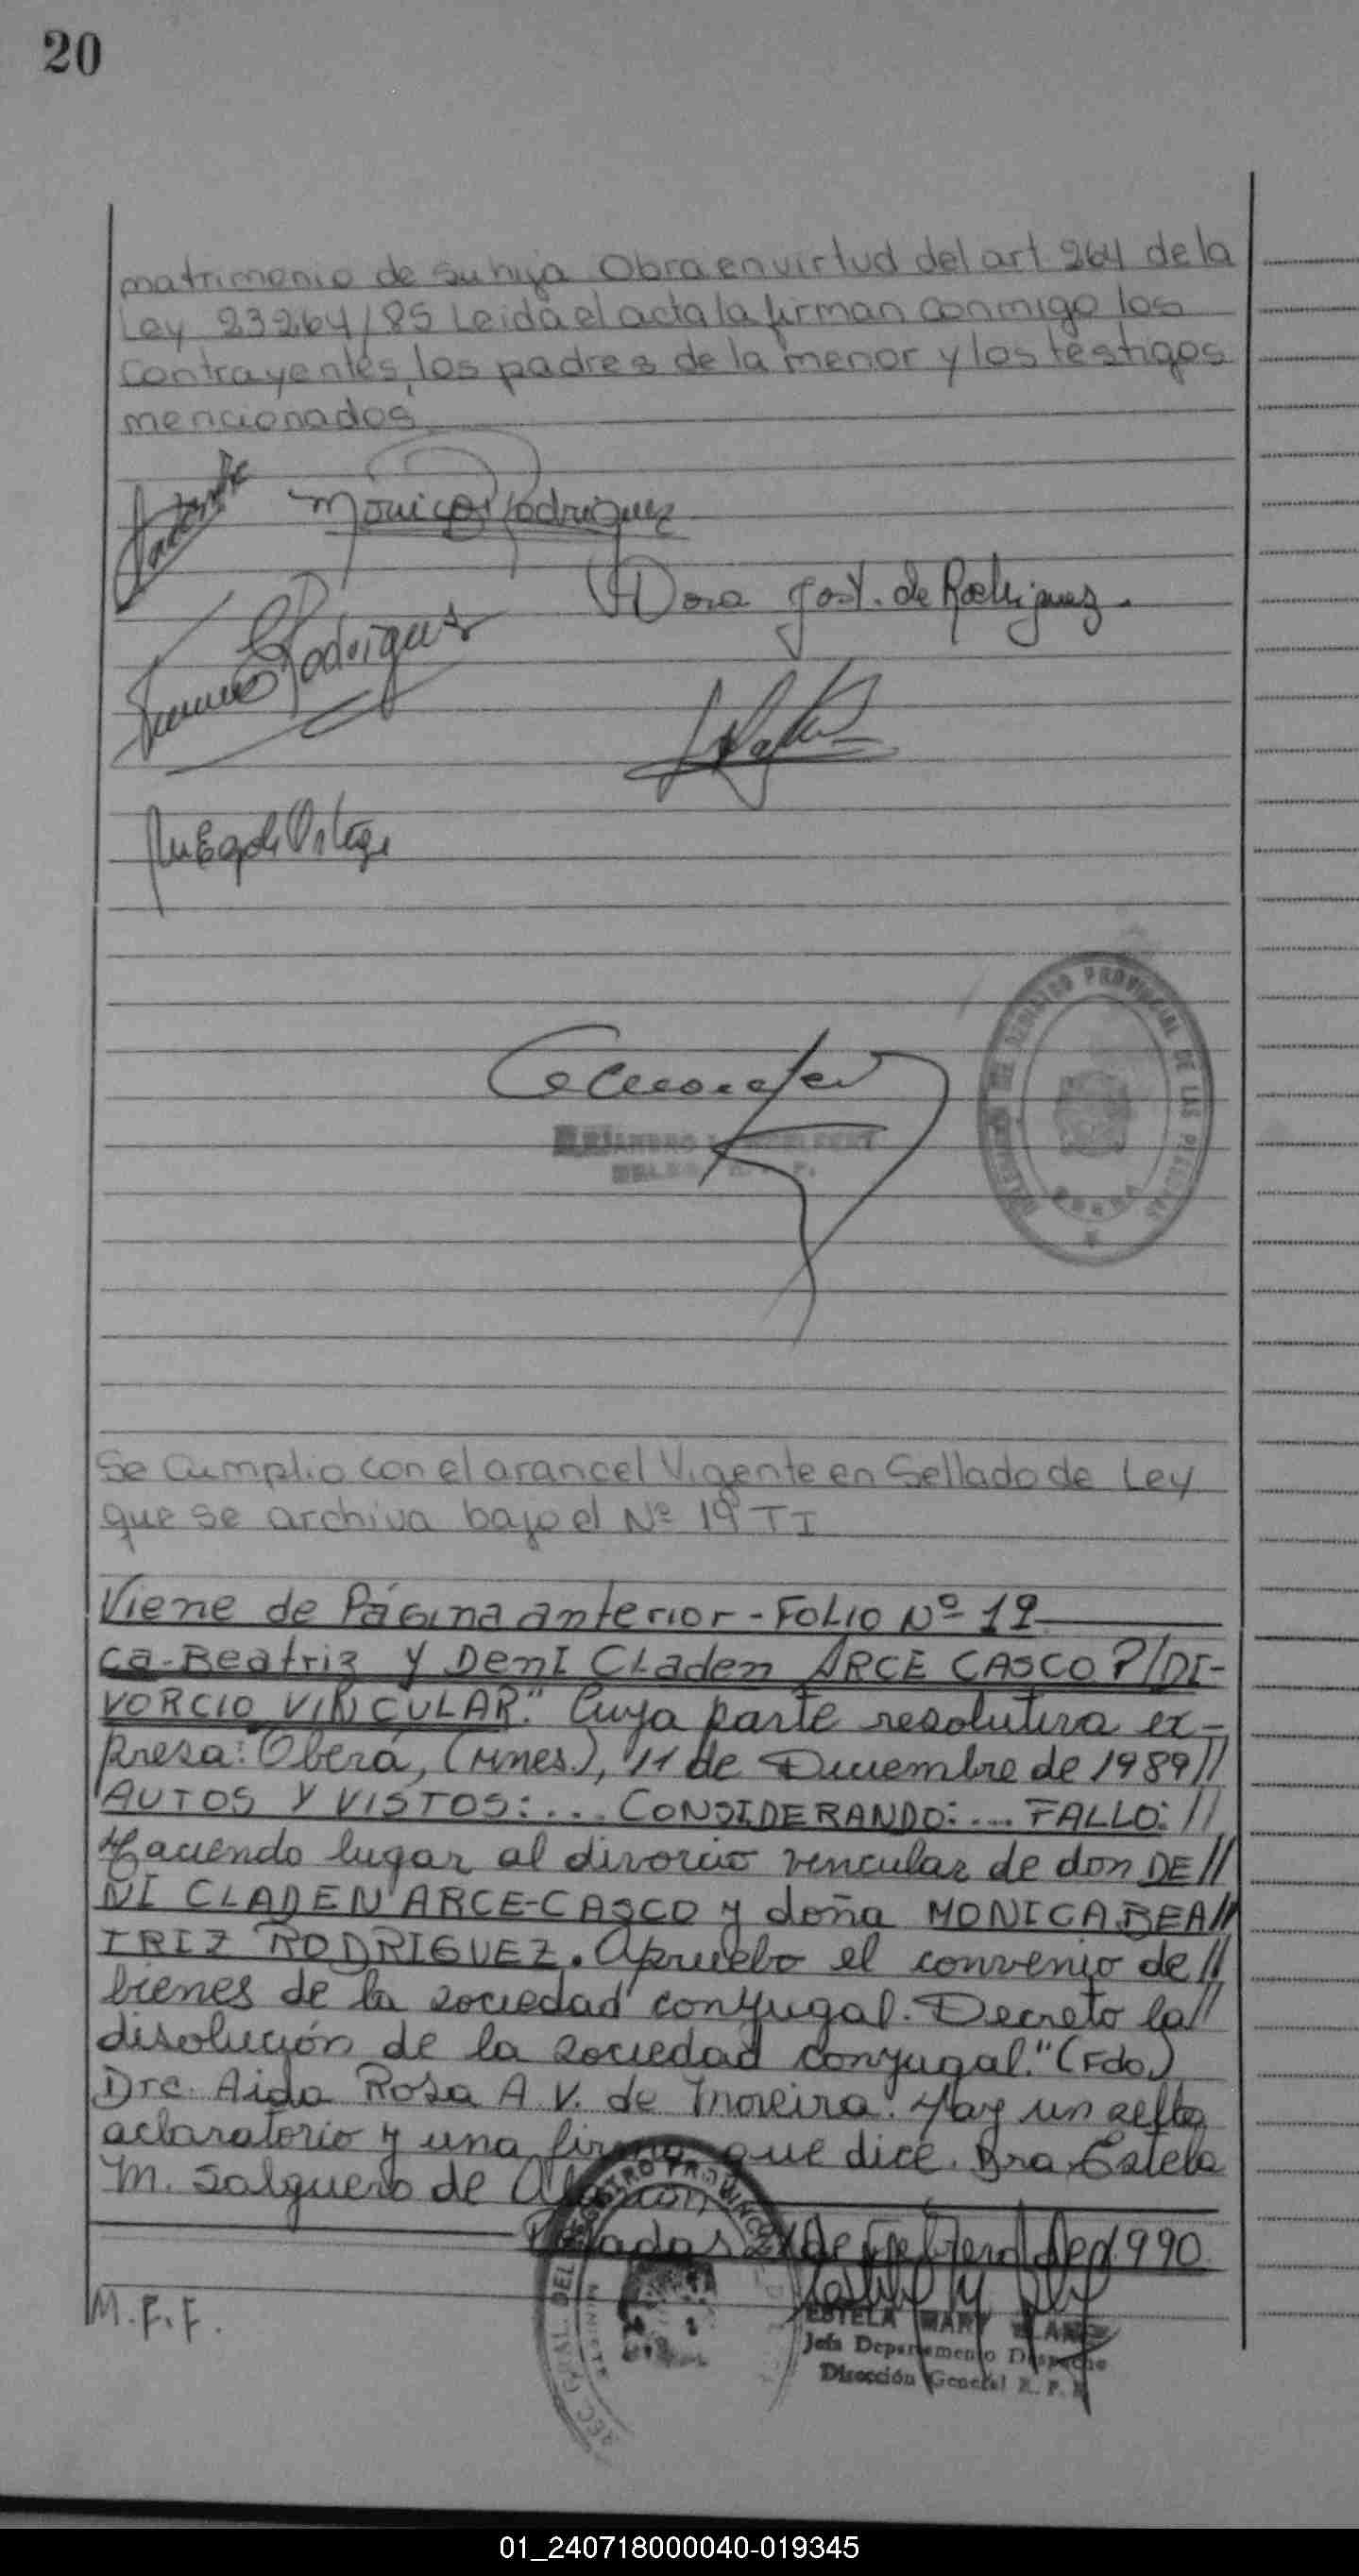 20
matrimonio de su hija Obra en virtud del art. 264 de la
Ley 23264/85 Leida el acta la firman conmigo los
contrayentes, los padres de la menor y los testigos
mencionados
Monica Rodriguez
Dora de Rodriguez
Rodriguez
de Ortega
DEL REGISTRO PROVINCIAL DE LAS PERSONAS
Se Cumplio con el arancel Vigente en Sellado de Ley
que se archiva bajo el Nº 19 TI
Viene de Página anterior - FOLIO Nº 19
ca-Beatriz y DenI Claden ARCE CASCO P/DI-
VORCIO VINCULAR." Cuya parte resolutiva ex-
presa: Oberá, (Mnes.), 11 de Diciembre de 1989//
AUTOS Y VISTOS:... CONSIDERANDO:... FALLO://
Haciendo lugar al divorcio vincular de don DE//
NI CLADEN ARCE-CASCO y doña MONICA BEA//
TRIZ RODRIGUEZ. Apruebo el convenio de//
bienes de la sociedad conyugal. Decreto la//
disolución de la sociedad conyugal." (Fdo.)
Dra. Aida Rosa A. V. de Moreira. Hay un sello
aclaratorio y una firma que dice. Dra. Estela
M. Salguero de
Posadas 21 de Febrero de 1990.
M.F.F.
ESTELA MARY
Jefa Departamento Despacho
Dirección General R. P. P.
01_240718000040-019345